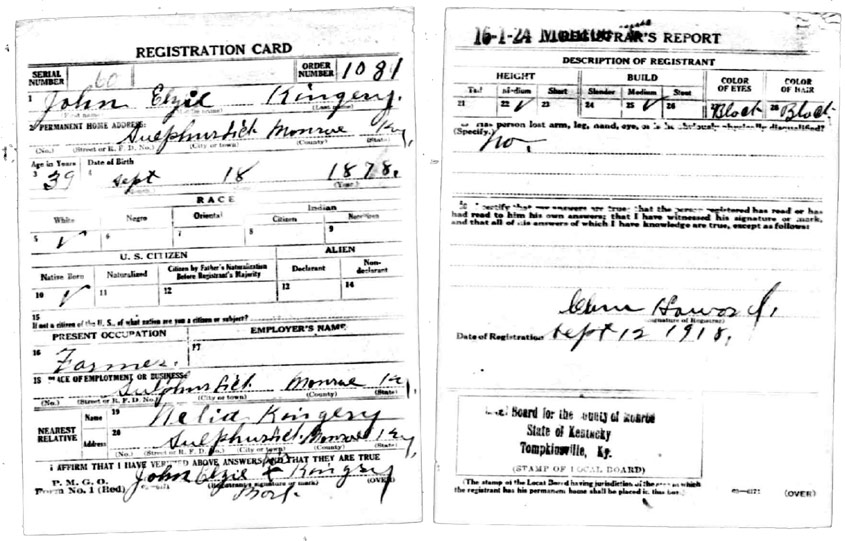 REGISTRATION CARD
SERIAL NUMBER 60 ORDER NUMBER 1081
1 John Elzie Kingery.
(Last name)
2 PERMANENT HOME ADDRESS:
Sulphurlick Monroe Ky.
(No.) (Street or R. F. D. No.) (City or town) (County) (State)
Age in Years Date of Birth
3 39 4 Sept 18 1878.
(Year.)
RACE
White Negro Oriental Indian
Citizen Noncitizen
5 ✓ 6 7 8 9
U. S. CITIZEN ALIEN
Native Born Naturalized Citizen by Father's Naturalization Before Registrant's Majority Declarant Non-declarant
10 ✓ 11 12 13 14
15
If not a citizen of the U. S., of what nation are you a citizen or subject?
PRESENT OCCUPATION EMPLOYER'S NAME
16 Farmer. 17
18 PLACE OF EMPLOYMENT OR BUSINESS:
Sulphurlick Monroe Ky
(No.) (Street or R. F. D. No.) (City or town) (County) (State)
NEAREST RELATIVE Name 19 Kingery
Address 20 Sulphurlick Monroe Ky.
(No.) (Street or R. F. D. No.) (City or town) (County) (State)
I AFFIRM THAT I HAVE VERIFIED ABOVE ANSWERS AND THAT THEY ARE TRUE
P. M. G. O.
Form No. 1 (Red) John Elzie x Kingery
(Registrant's signature or mark) (OVER)
16-1-24 REGISTRAR'S REPORT
DESCRIPTION OF REGISTRANT
HEIGHT BUILD COLOR OF EYES COLOR OF HAIR
Tall Medium Short Slender Medium Stout
21 22 ✓ 23 24 25 ✓ 26 27 Black 28 Black
29 Has person lost arm, leg, hand, eye, or is he obviously physically disqualified?
(Specify.) No.
30 I certify that my answers are true; that the person registered has read or has
had read to him his own answers; that I have witnessed his signature or mark,
and that all of his answers of which I have knowledge are true, except as follows:
(Signature of Registrar)
Date of Registration Sept 12 1918.
Local Board for the County of Monroe
State of Kentucky
Tompkinsville, Ky.
(STAMP OF LOCAL BOARD)
(The stamp of the Local Board having jurisdiction of the area in which
the registrant has his permanent home shall be placed in this box.)
(OVER)